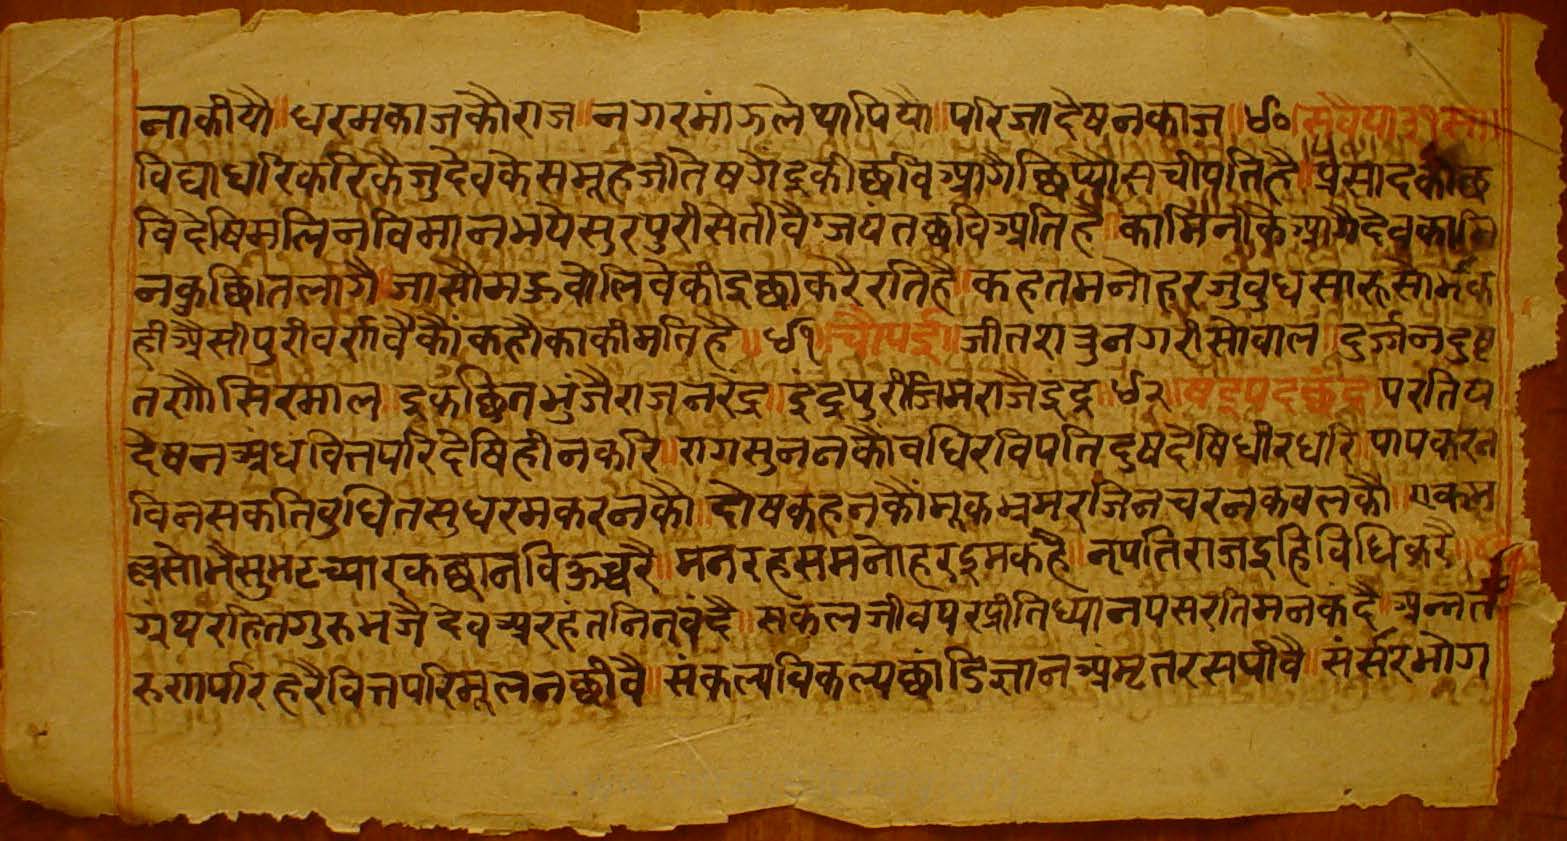 नाकीयौ॥ धरमकाजकौराज॥ नगरमांगले थापियौ॥ परिजादैषनकाज॥ ४०॥ सवैया ३१ सा॥
विद्याधरिकरिकैजुदेवकेसमूहजीतेषगेंद्रकीछविआगैछिप्यौसचीपतिहै॥ प्रसादकीछ
विदेषिमलिनविमानभयेसुरपुरीसेतीवैजयंतछविअतिहै॥ कामिनीकैआगैदेवकामि
नकुछितलागै॥ जासौमऊबोलिवेकीइछाकरैरतिहै॥ कहतमनोहरजुबुधसारूसोमैंक
हीअैसीपुरीवर्णवैकौंकहौकाकीमतिहै॥ ४१॥ चौपई॥ जीतशत्रुनगरीसोवाल॥ दुर्जनदुष्ट
तणौसिरमाल॥ इकछितभुंजैराजनरेंद्र॥ इंद्रपुरीजिमराजैइंद्र॥ ४२॥ षट्पदछंद॥ परतिय
देषनअंधवित्तपरिदेषिहीनकरि॥ रागसुननकौवधिरविपतिदुषदेषिधीरधरि॥ पापकरन
विनसकतिबुधितसुधरमकरनकौ॥ दोषकहनकौंमूकभ्रमरजिनचरनकवलकौ॥ एकम
ल्लसोभैसुभटच्यारकछानविऊचरै॥ मनरहसमनोहरइमकहै॥ नृपतिराजइहिविधिकरै॥
ग्रंथरहितगुरुभजैदेवअरहंतनितवंदै॥ सकलजीवपरप्रीतिध्यानपसरतिमनकंदै॥ अन्नत
रुणीपरिहरैवित्तपरिमूलनछीवै॥ संकल्पविकल्पछांडिज्ञानअंमृतरसपीवै॥ संसारभोग